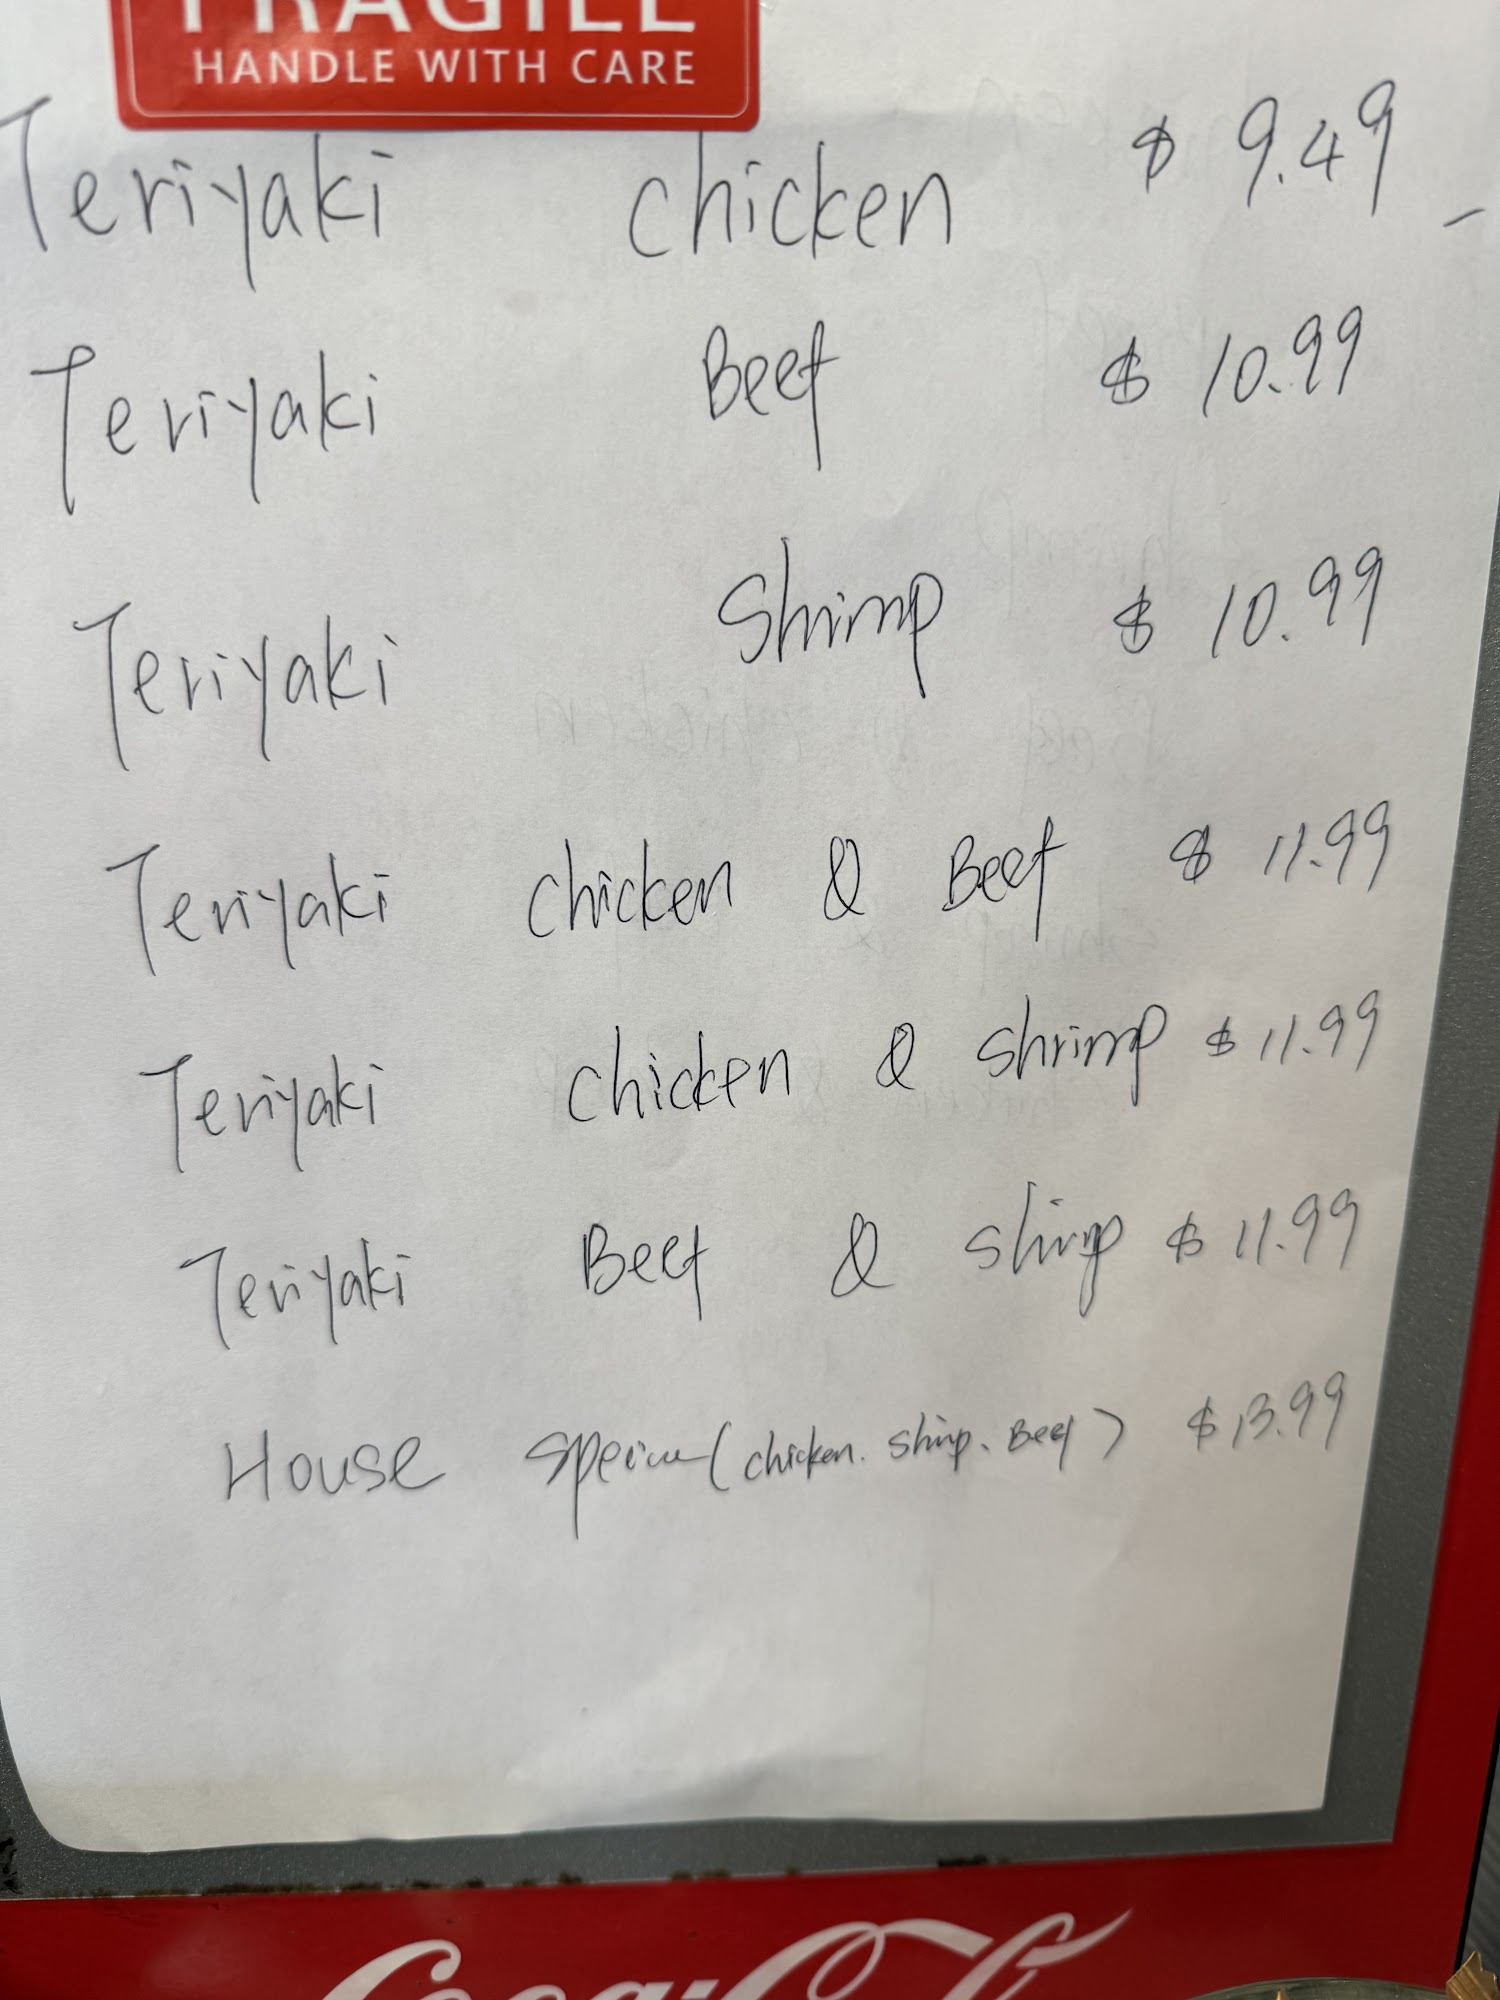 FRAGILE
HANDLE WITH CARE
Teriyaki chicken $ 9.49
Teriyaki Beef $ 10.99
Teriyaki Shrimp $ 10.99
Teriyaki chicken & Beef $ 11.99
Teriyaki chicken & shrimp $ 11.99
Teriyaki Beef & shrimp $ 11.99
House special (chicken. shrimp. Beef) $ 13.99
Coca-Cola